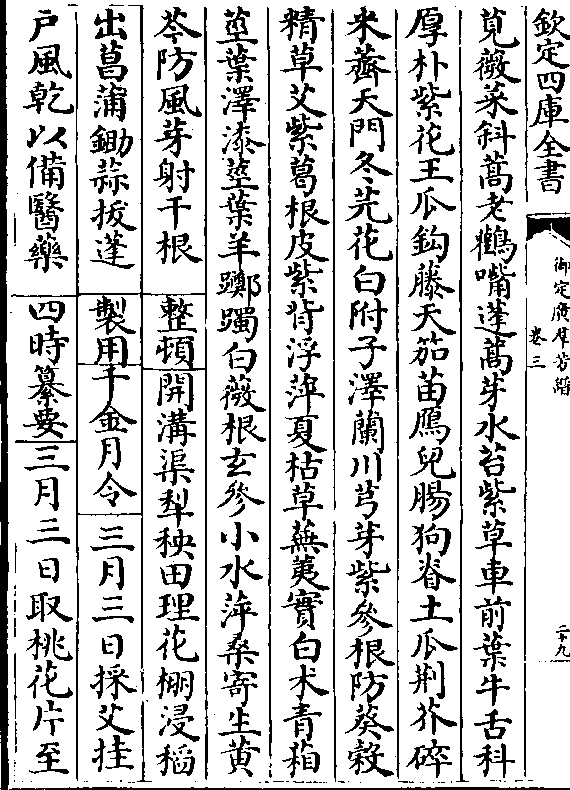 欽定四庫全書
御定廣羣芳譜
卷三
二十九
莧薇菜斜蒿老鸛嘴蓬蒿芽水苔紫草車前葉牛舌科
厚朴紫花王瓜鈎藤天茄苗鴈兒腸狗脊土瓜荆芥碎
米薺天門冬芫花白附子澤蘭川芎芽紫參根防葵穀
精草艾紫葛根皮紫背浮萍夏枯草蕪荑實白术青葙
莖葉澤漆莖葉羊躑躅白薇根玄參小水萍桑寄生黄
芩防風芽射干根 整頓開溝渠犁秧田理花棚浸稻
出菖蒲鋤蒜拔蓬 製用千金月令 三月三日採艾挂
户風乾以備醫藥 四時纂要三月三日取桃花片至